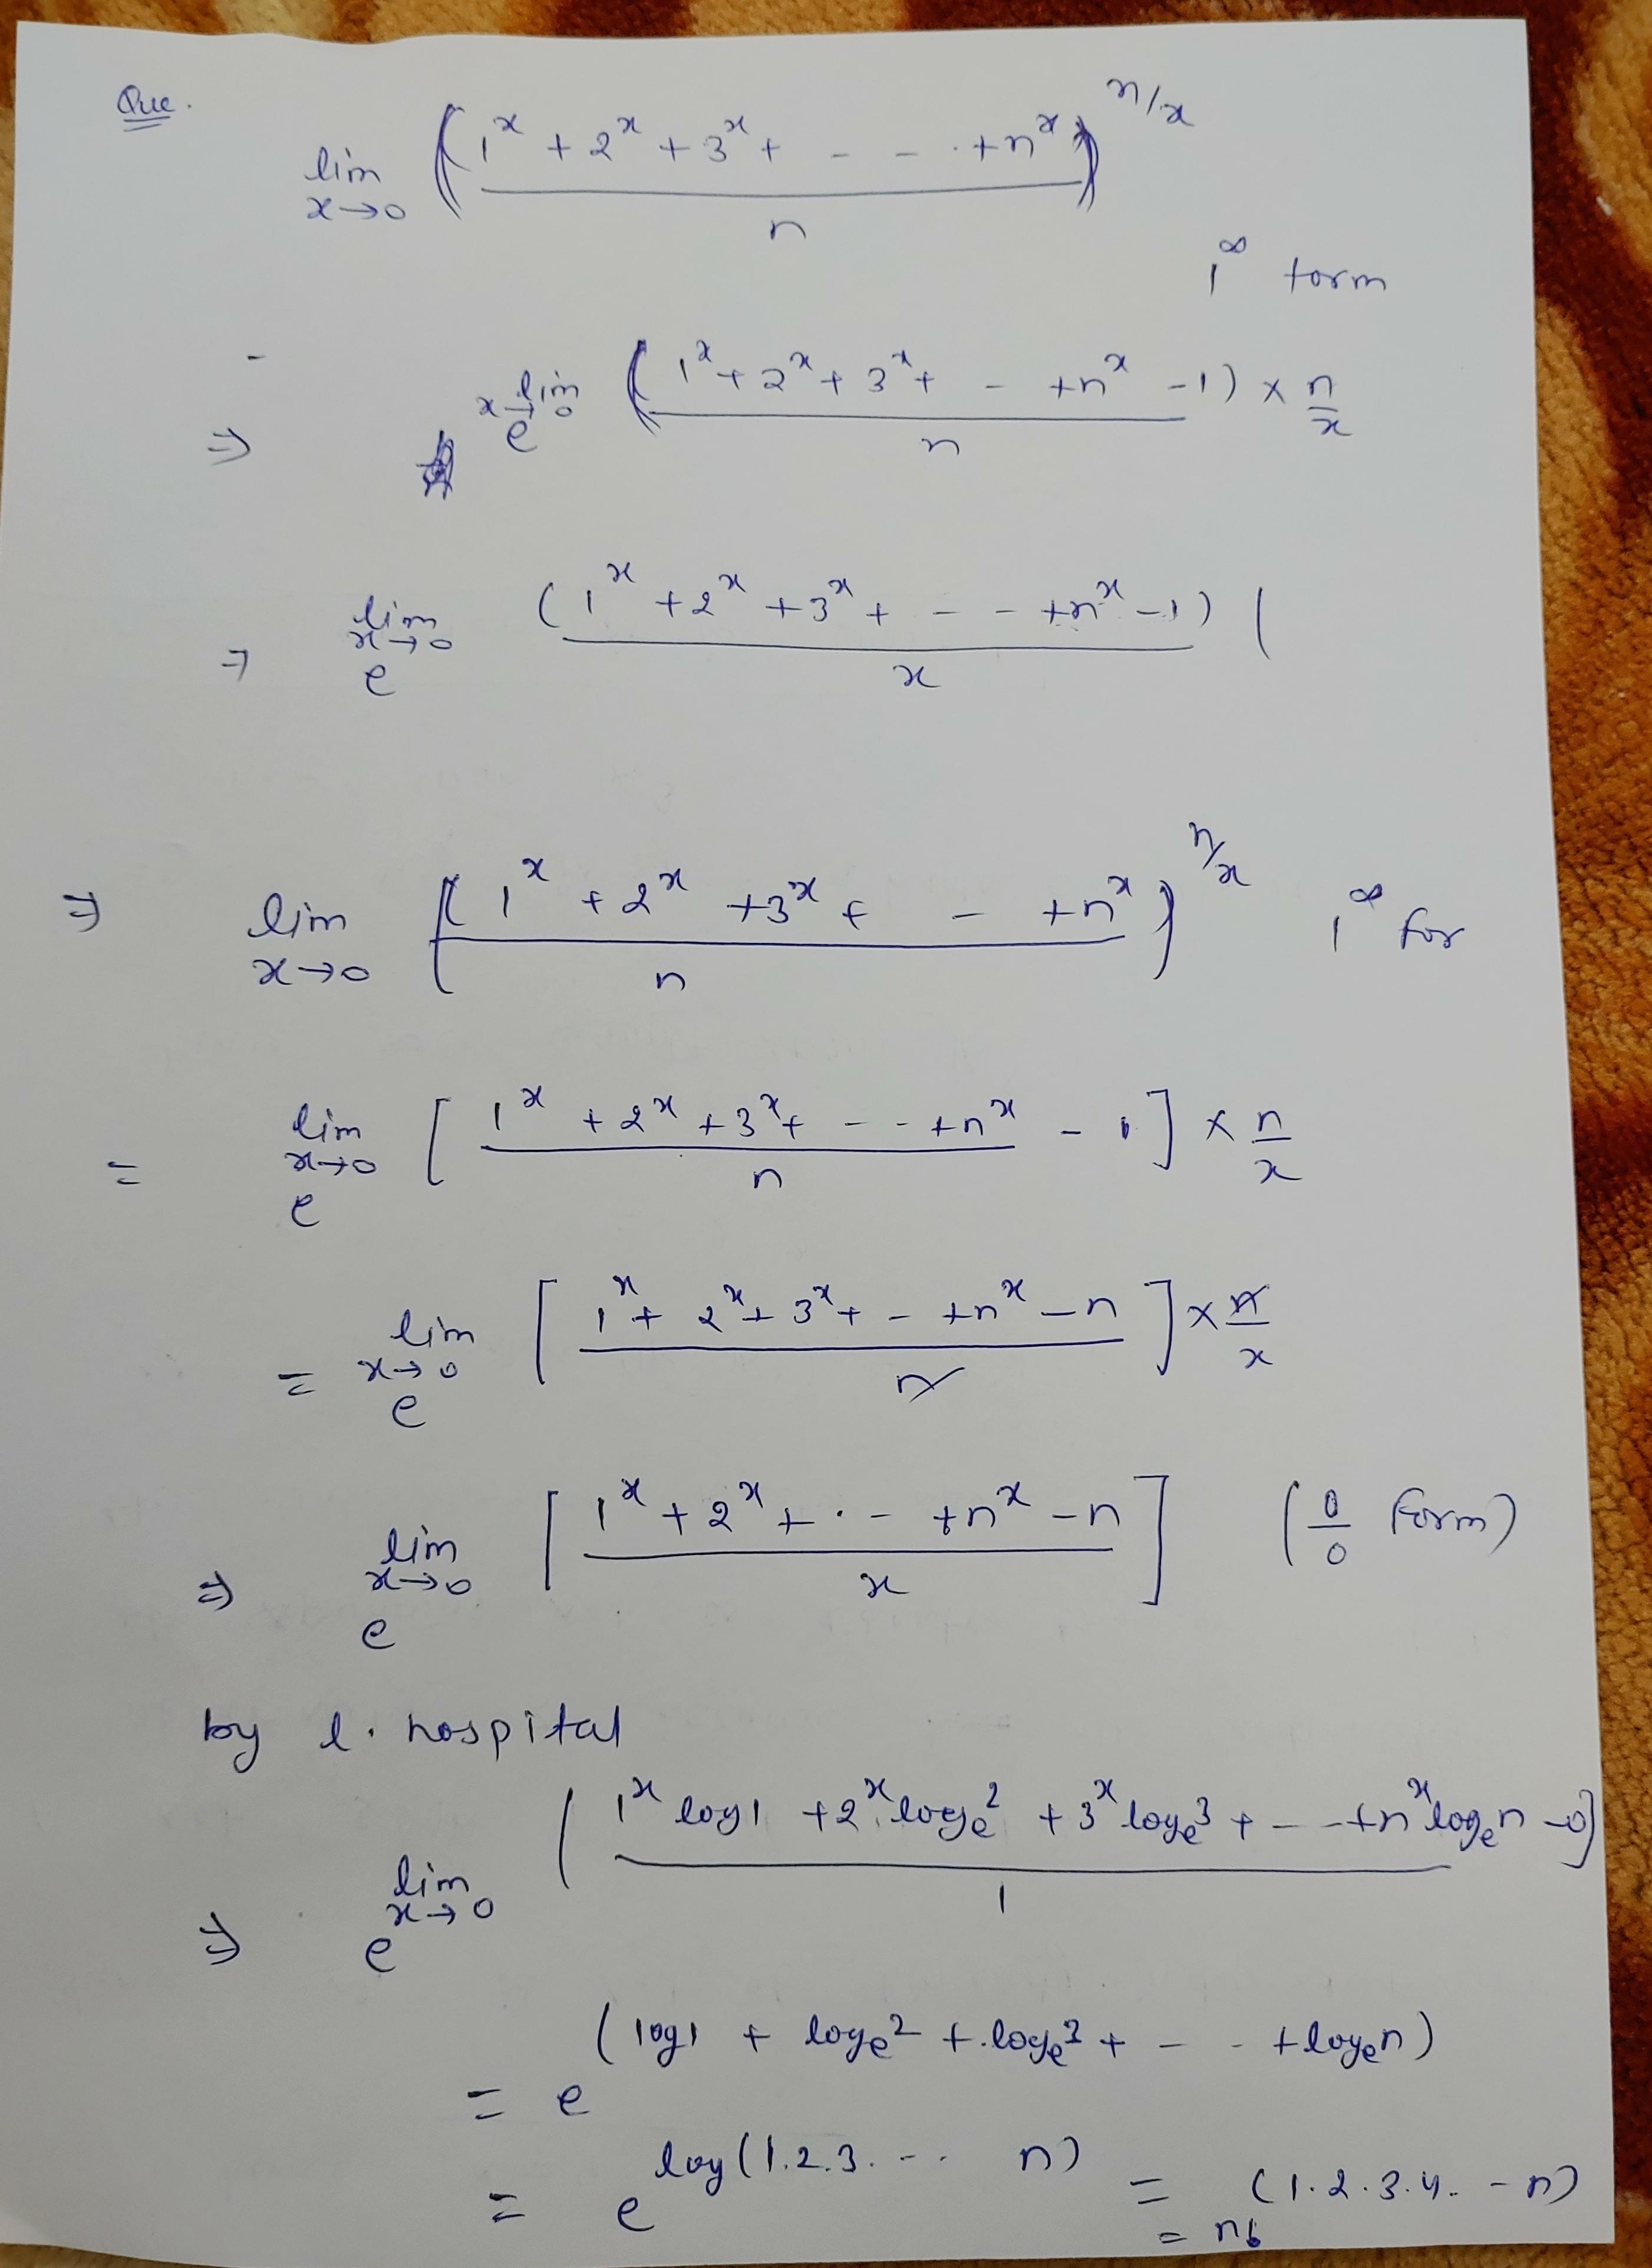 Que.
lim x→0 ( (1^x + 2^x + 3^x + - - . + n^x) / n )^(n/x)
1^∞ form
⇒ e^ lim x→0 ( (1^x + 2^x + 3^x + - + n^x - 1) / n ) × n/x
⇒ e^ lim x→0 ( (1^x + 2^x + 3^x + - - + n^x - 1) / x ) (
⇒ lim x→0 ( (1^x + 2^x + 3^x + - + n^x) / n )^(n/x) 1^∞ for
= e^ lim x→0 [ (1^x + 2^x + 3^x + - - + n^x) / n - 1 ] × n/x
= e^ lim x→0 [ (1^x + 2^x + 3^x + - + n^x - n) / n ] × n/x
⇒ e^ lim x→0 [ (1^x + 2^x + . - + n^x - n) / x ] (0/0 form)
by l. hospital
⇒ e^ lim x→0 ( (1^x log1 + 2^x log_e 2 + 3^x log_e 3 + - - + n^x log_e n - 0) / 1 ]
= e^(log1 + log_e 2 + log_e 3 + - - + log_e n)
= e^log(1.2.3. - - n) = (1.2.3.4. - n)
= n!